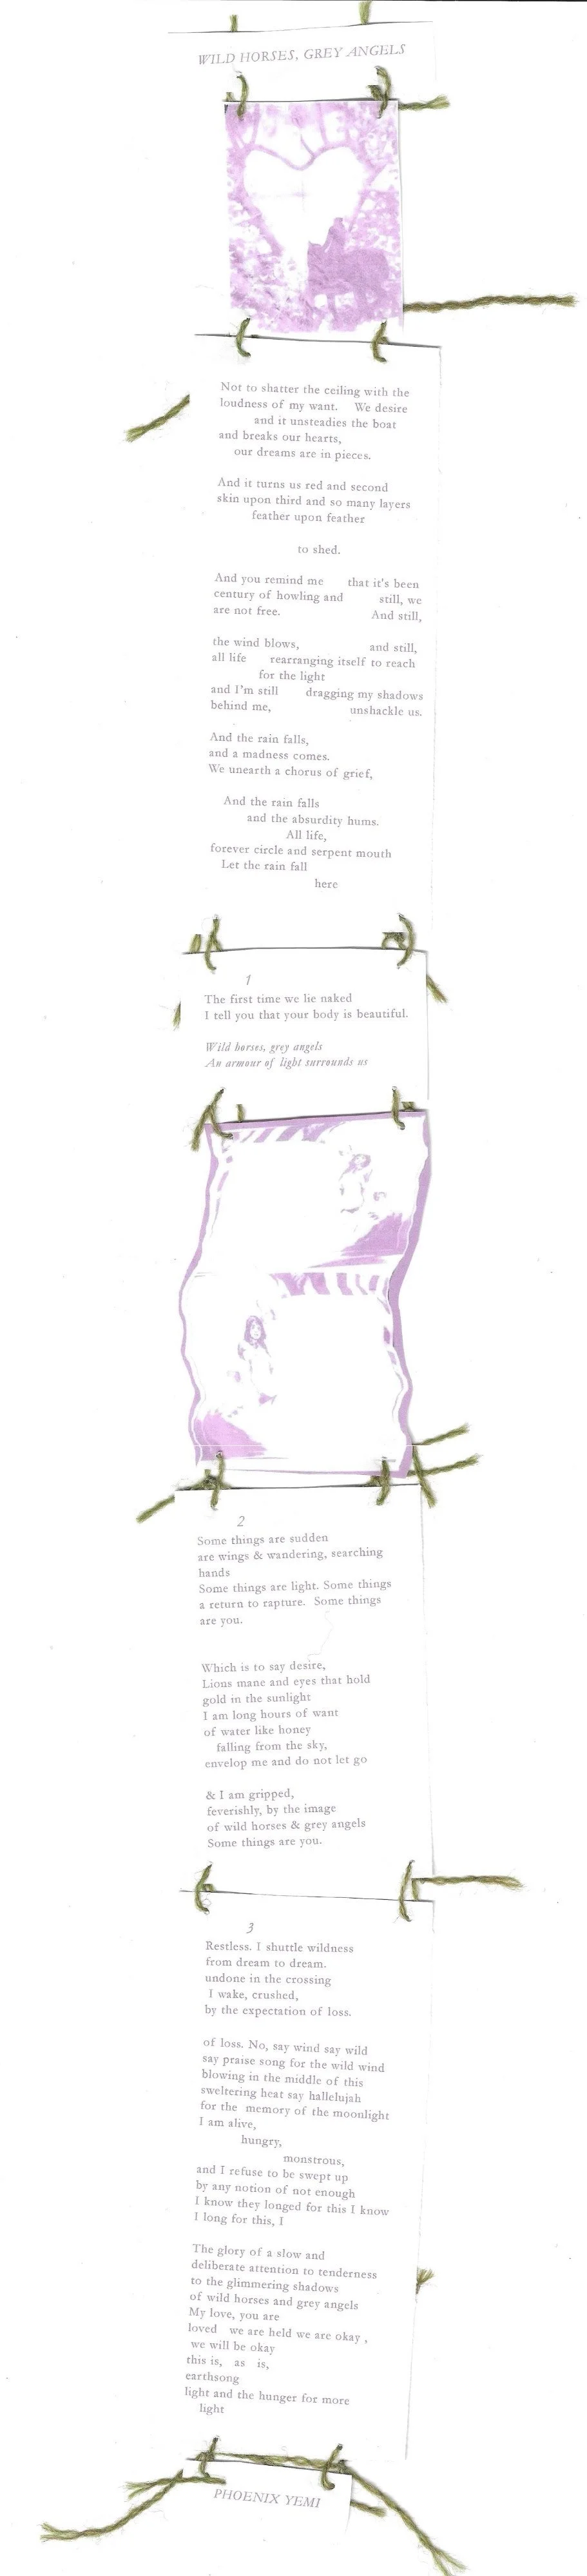 WILD HORSES, GREY ANGELS
Not to shatter the ceiling with the
loudness of my want. We desire
and it unsteadies the boat
and breaks our hearts,
our dreams are in pieces.
And it turns us red and second
skin upon third and so many layers
feather upon feather
to shed.
And you remind me that it's been
century of howling and still, we
are not free. And still,
the wind blows, and still,
all life rearranging itself to reach
for the light
and I'm still dragging my shadows
behind me, unshackle us.
And the rain falls,
and a madness comes.
We unearth a chorus of grief,
And the rain falls
and the absurdity hums.
All life,
forever circle and serpent mouth
Let the rain fall
here
1
The first time we lie naked
I tell you that your body is beautiful.
Wild horses, grey angels
An armour of light surrounds us
2
Some things are sudden
are wings & wandering, searching
hands
Some things are light. Some things
a return to rapture. Some things
are you.
Which is to say desire,
Lions mane and eyes that hold
gold in the sunlight
I am long hours of want
of water like honey
falling from the sky,
envelop me and do not let go
& I am gripped,
feverishly, by the image
of wild horses & grey angels
Some things are you.
3
Restless. I shuttle wildness
from dream to dream.
undone in the crossing
I wake, crushed,
by the expectation of loss.
of loss. No, say wind say wild
say praise song for the wild wind
blowing in the middle of this
sweltering heat say hallelujah
for the memory of the moonlight
I am alive,
hungry,
monstrous,
and I refuse to be swept up
by any notion of not enough
I know they longed for this I know
I long for this, I
The glory of a slow and
deliberate attention to tenderness
to the glimmering shadows
of wild horses and grey angels
My love, you are
loved we are held we are okay ,
we will be okay
this is, as is,
earthsong
light and the hunger for more
light
PHOENIX YEMI